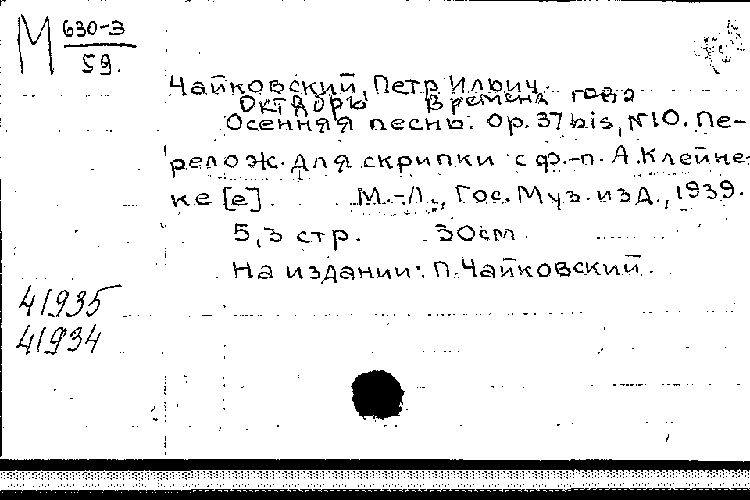 М 630-3
59.
Чайковский, Петр Ильич.
Октябрь Времена года
Осенняя песнь. Op. 37 bis, №10. Пе-
релож. для скрипки с ф.-п. А. Клейне-
ке [е]. М.-Л., Гос. Муз. изд., 1939.
5,3 стр. 30 см
На издании: П. Чайковский.
41935
41934